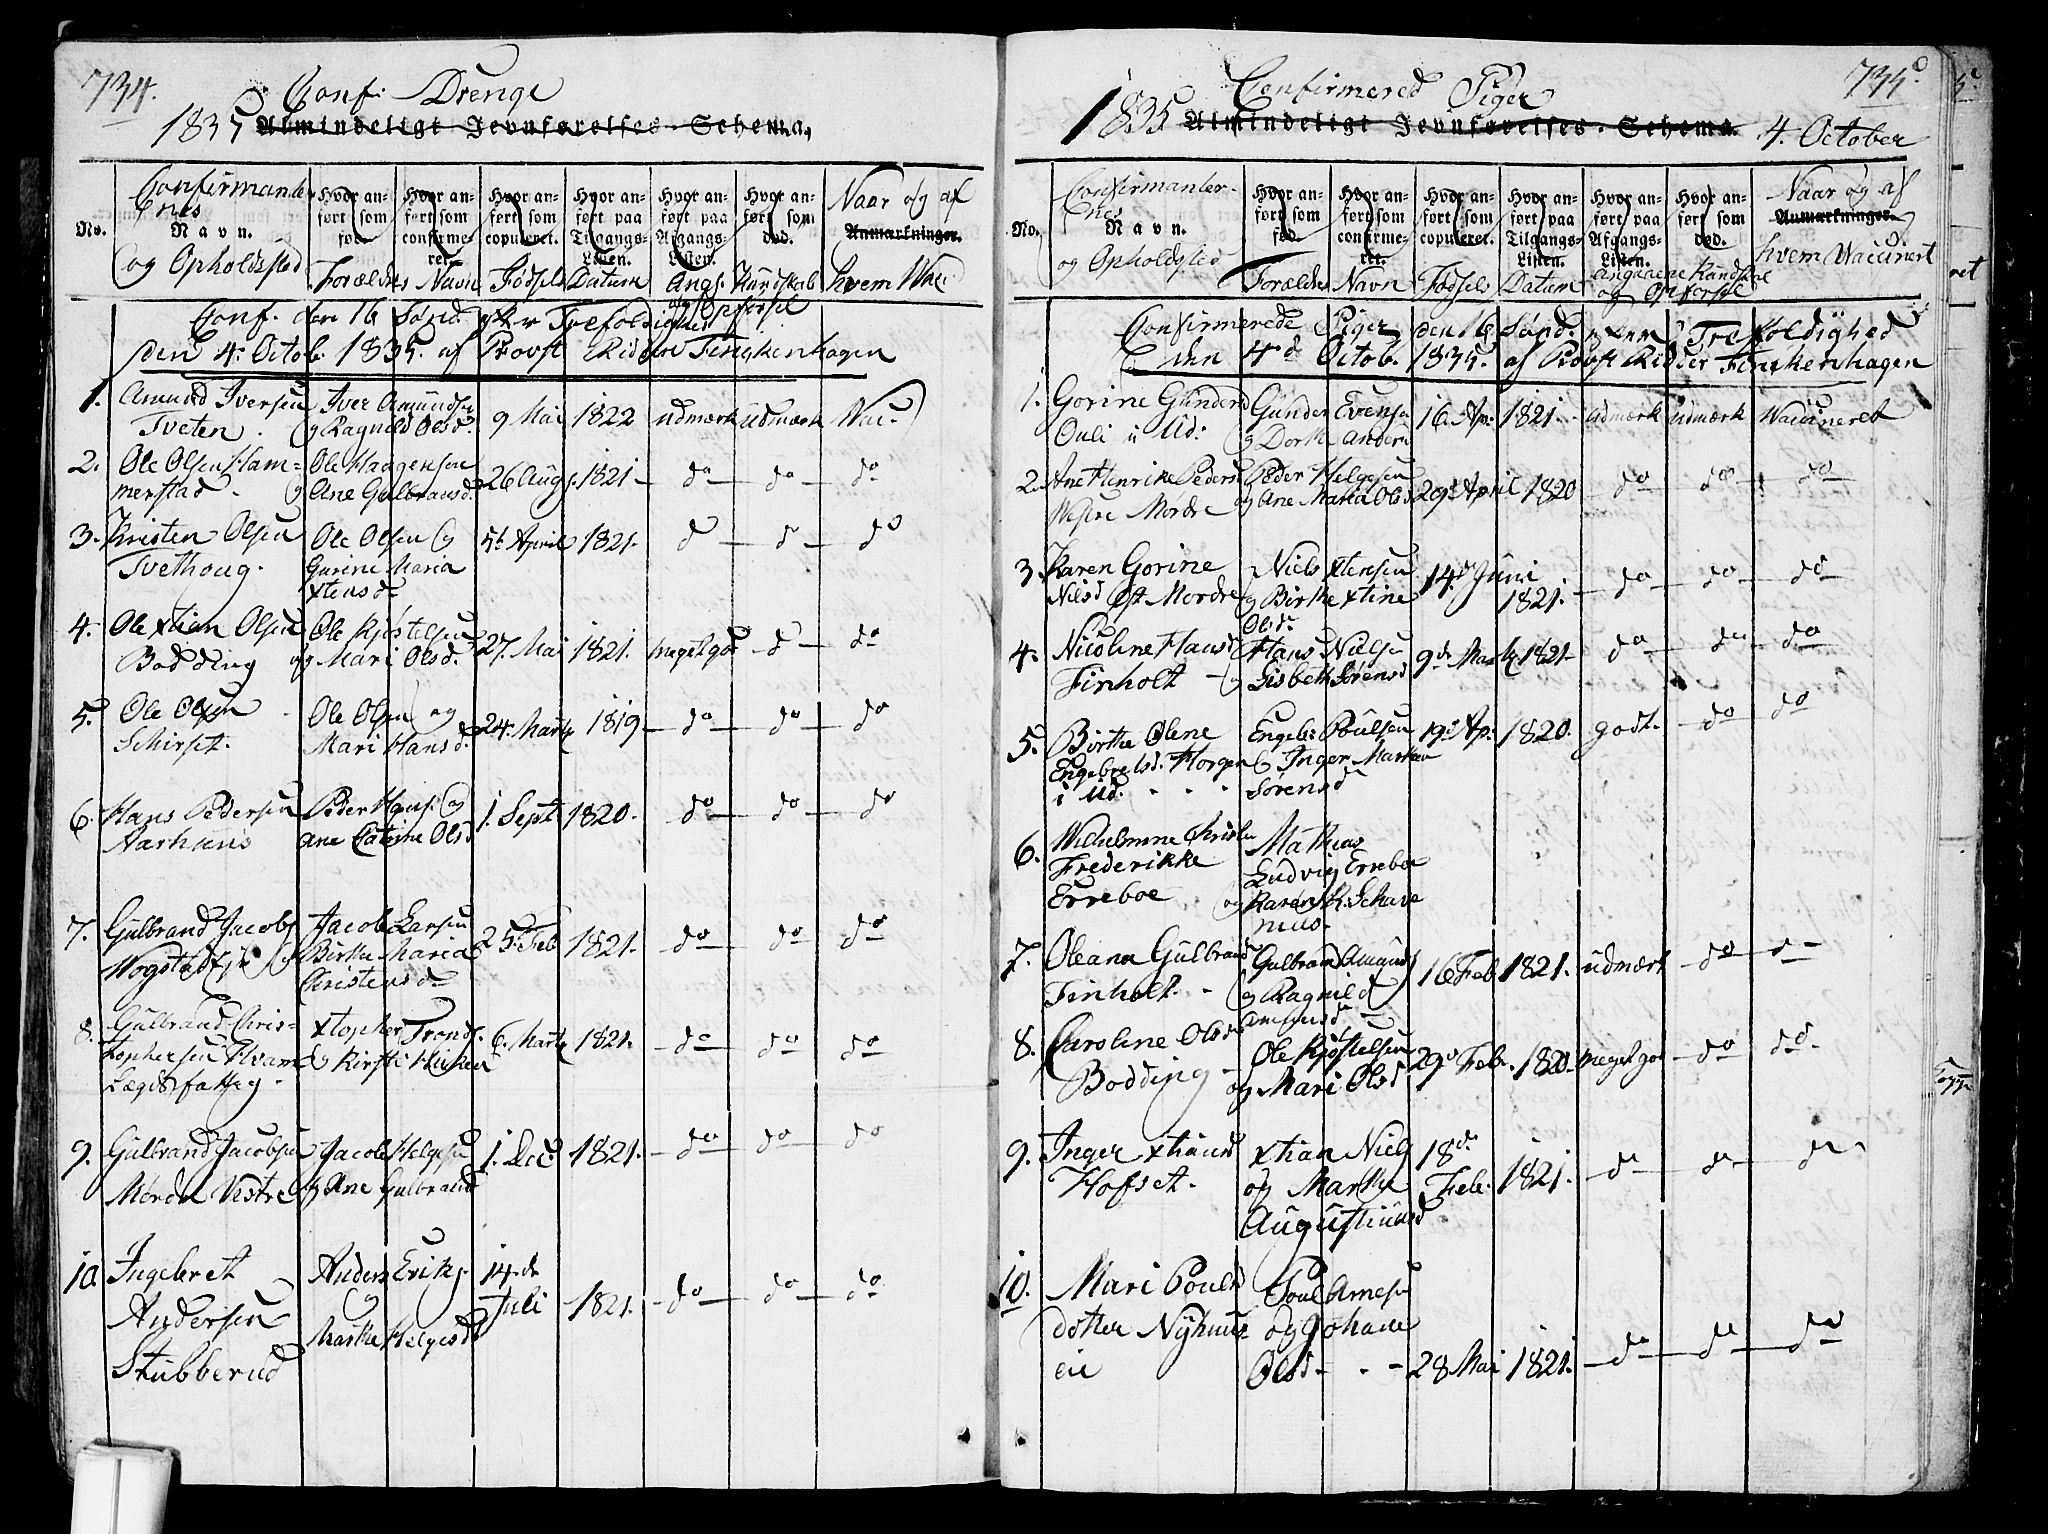 734.
Conf. Drenge
1835 Almindeligt Jevnførelses-Schema,
No.
Confirmanter
nes
Navn.
og Opholdsted
Hvor anført som fød.
Hvor anført som confirmeret.
Hvor anført som copuleret.
Hvor anført paa Tilgangs-Listen.
Hvor anført paa Afgangs-Listen.
Hvor anført som død.
Naar og af
Anmærkninger.
hvem Vac.
Forældres Navn
Fødsels Datum
Ang. Kundskab
og Opførsel
Conf. den 16 Sønd. Trefoldighed
den 4. Octob. 1835. af Provst Ridder Finckenhagen
1. Amund Iversen
Tveten.
Iver Amundsen
og Ragnild Olsd.
9 Mai 1822 udmærk udmærk Vac.
2. Ole Olsen Ham-
merstad
Ole Haagensen
og Ane Gulbransd.
26 Aug. 1821 do do do
3. Kristen Olsen
Tvethoug.
Ole Olsen og
Gurine Maria
xtensd
5t April 1821. d d do
4. Ole xtian Olsen
Bodding
Ole Kjøstelsen
og Mari Olsd.
27. Mai 1821. meget god d do
5. Ole Olsen
Schirset.
Ole Olsen og
Mari Hansd.
24. Martz 1819. do do do
6. Hans Pedersen
Aarhuus
Peder Hans. og
Ane Catrine Olsd
1. Sept 1820. do do do
7. Gulbrand Jacobs
Wogstad
Jacob Larsen
Birthe Maria
Christensd
25. Feb 1821. do do do
8. Gulbrand Chris-
tophersen Hvam
Lægdsfattig
xtopher Tronds.
og Kirsti
6. Martz 1821. do do do
9. Gulbrand Jacobsen
Mørdre Vestre
Jacob Helgesen
og Ane Gulbrand
1. Dec. 1821. do do do
10 Ingebret
Andersen
Stubberud
Anders Eriks.
og
Marthe Helgesd
14. de
Juli 1821. do do do
735
Confirmered Piger
1835 Almindeligt Jevnførelses-Schema. 4. October
No.
Confirmanter-
nes
Navn.
og Opholdsted
Hvor anført som fød.
Hvor anført som confirmeret.
Hvor anført som copuleret.
Hvor anført paa Tilgangs-Listen.
Hvor anført paa Afgangs-Listen.
Hvor anført som død.
Naar og af
Anmærkninger.
hvem Vaccinert
Forældres Navn
Fødsels Datum
og Opførsel
Confirmerede Piger den 16 Sønd. Trefoldighed
den 4d Octob. 1835. af Provst Ridder Finckenhagen
1. Gorine Gunders
Ouli i Ud:
Gunder Evensen
og Dorthe Anders
16. Ap: 1821. udmærk udmærk Vaccineret
2. Ane Henrike Peders
Vestre Mørdre
Peder Helgesen
og Ane Maria Olsd
29d April 1820 do do do
3. Karen Gorine
Nilsd Øst Mordre
Niels xtensen
og Birthe xtine
Olsd.
14. d Juni
1821. do do do
4. Nicoline Hansd
Finholt
Hans Nielsen
og Lisbeth Sørensd
9de Martz 1821 do do do
5. Birthe Olene
Engebretsd. Horgen
i Ud.
Engeb: Poulsen
og Inger Marthea
Sørensd
19d Ap: 1820. godt. do do
6. Wilhelmine Christin
Frederikke
Erreboe
Mathias
Ludvig Erreboe
og Karen K. Schave
nius.
7. Oleana Gulbrand
Finholt.
Gulbrand Amund
og Ragnild
Amunsd
16 Feb 1821. udmært do d
8. Caroline Olsd
Bodding
Ole Kjøstelsen
og Mari Olsd
29d Feb. 1820 meget god do do.
9. Inger xtiansd
Hofset.
xtian Niels
og Marthe
Augustinusd
18d
Feb. 1821. do do do
10. Mari Pouls
dotter Nyhuus
eie
Poul Arnesen
og Johane
Olsd
28 Mai 1821. do do do